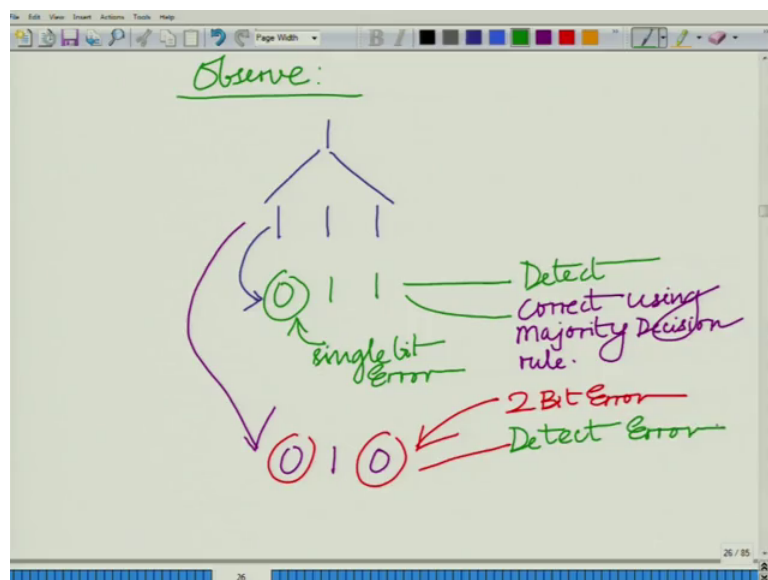 File Edit View Insert Actions Tools Help
Page Width
B I
Observe:
1
1 1 1
0 1 1
Detect
Correct using
Majority Decision
rule.
single bit
Error
2 Bit Error
0 1 0
Detect Error
26 / 85
26